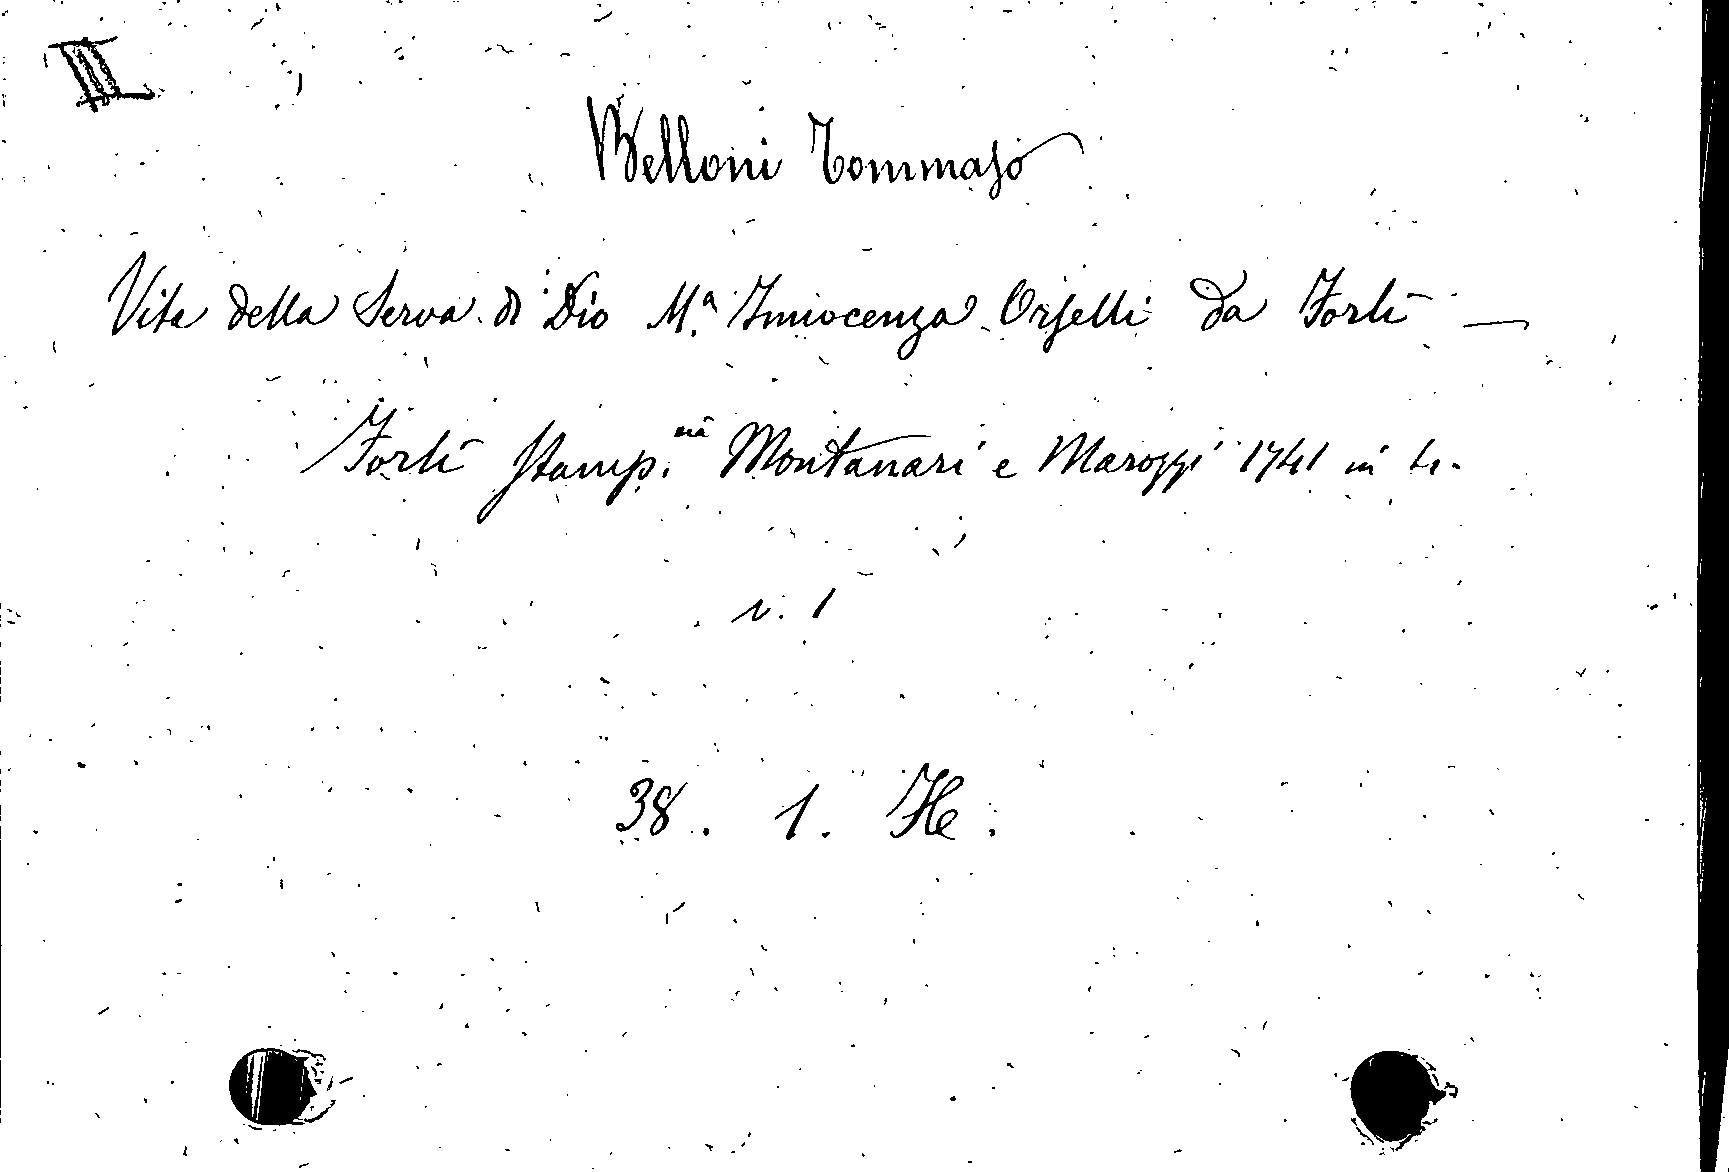 III
Belloni Tommaso
Vita della Serva di Dio M.ª Innocenza Orselli da Forlì —
Forlì Stamp.ria Montanari e Marozzi 1741 in 4.
v. 1
38. 1. He.